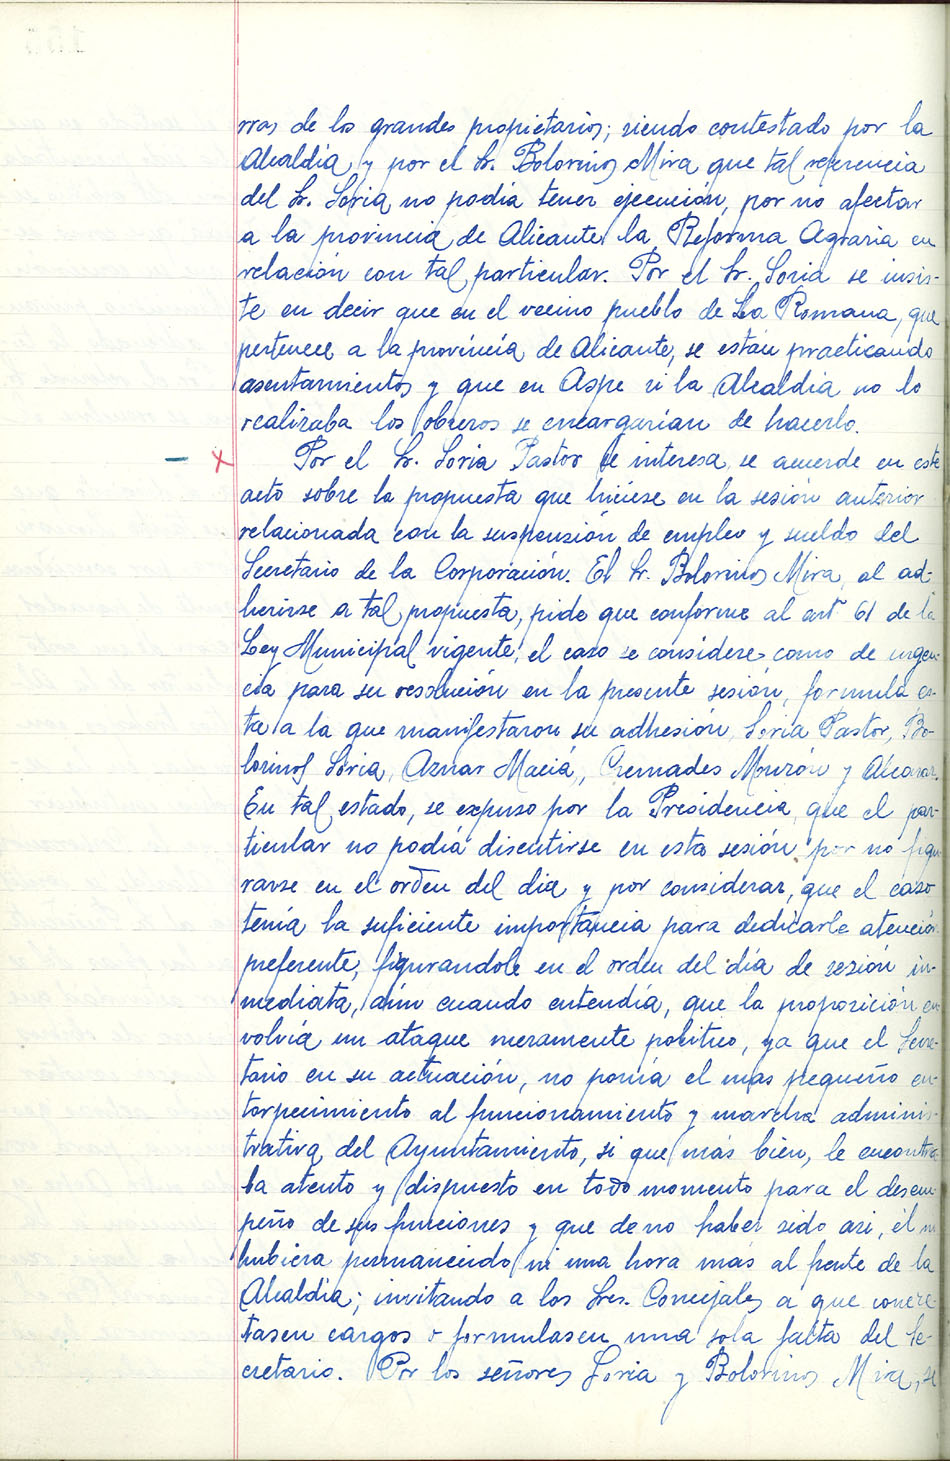 rras de los grandes propietarios; siendo contestado por la
Alcaldía y por el Sr. Bolorinos Mira que tal referencia
del Sr. Soria no podía tener ejecución, por no afectar
a la provincia de Alicante la Reforma Agraria en
relación con tal particular. Por el Sr. Soria se insis-
te en decir que en el vecino pueblo de La Romana, que
pertenece a la provincia de Alicante, se están practicando
asentamientos y que en Aspe si la Alcaldía no lo
realizaba los obreros se encargarían de hacerlo.
Por el Sr. Soria Pastor se interesa se acuerde en este
acto sobre la propuesta que hiciese en la sesión anterior
relacionada con la suspensión de empleo y sueldo del
Secretario de la Corporación. El Sr. Bolorinos Mira, al ad-
herirse a tal propuesta, pide que conforme al artº 61 de la
Ley Municipal vigente, el caso se considere como de urgen-
cia para su resolución en la presente sesión, formula es-
ta a la que manifestaron su adhesión, Soria Pastor, Bo-
lorinos Soria, Aznar Maciá, Cremades Monzón y Alcaraz.
En tal estado, se expuso por la Presidencia, que el par-
ticular no podía discutirse en esta sesión por no figu-
rarse en el orden del día y por considerar, que el caso
tenía la suficiente importancia para dedicarle atención
preferente, figurandole en el orden del día de sesión in-
mediata, aún cuando entendía, que la proposición en-
volvía un ataque meramente político, ya que el Secre-
tario en su actuación, no ponía el mas pequeño en-
torpecimiento al funcionamiento y marcha adminis-
trativa del Ayuntamiento, si que más bién, le encontra-
ba atento y dispuesto en todo momento para el desem-
peño de sus funciones y que de no haber sido asi, él n
hubiera permanecido ni una hora más al frente de la
Alcaldía; invitando a los Sres. Concejales a que concre-
tasen cargos o formulasen una sola falta del Se-
cretario. Por los señores Soria y Bolorinos Mira, se